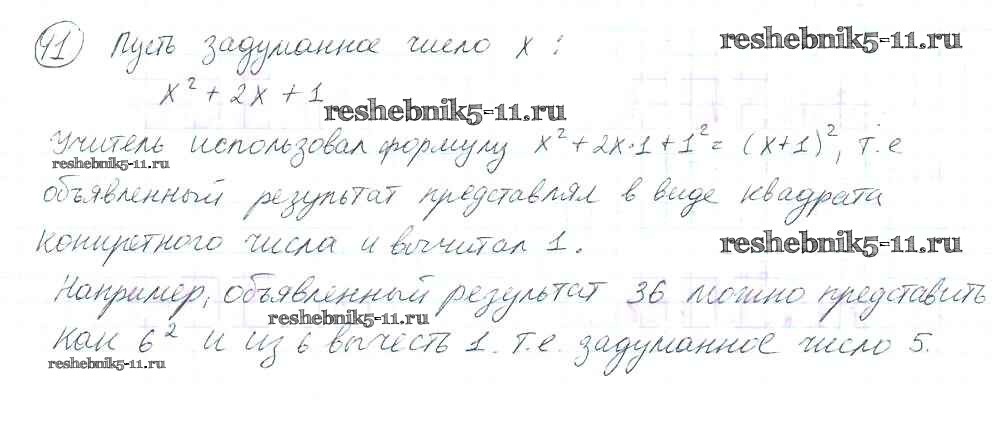 41) Пусть задуманное число x: reshebnik5-11.ru
x² + 2x + 1 reshebnik5-11.ru
Учитель использовал формулу x² + 2x·1 + 1² = (x+1)², т.е
reshebnik5-11.ru
объявленный результат представлял в виде квадрата
конкретного числа и вычитал 1. reshebnik5-11.ru
Например, объявленный результат 36 можно представить
reshebnik5-11.ru
как 6² и из 6 вычесть 1. т.е. задуманное число 5.
reshebnik5-11.ru